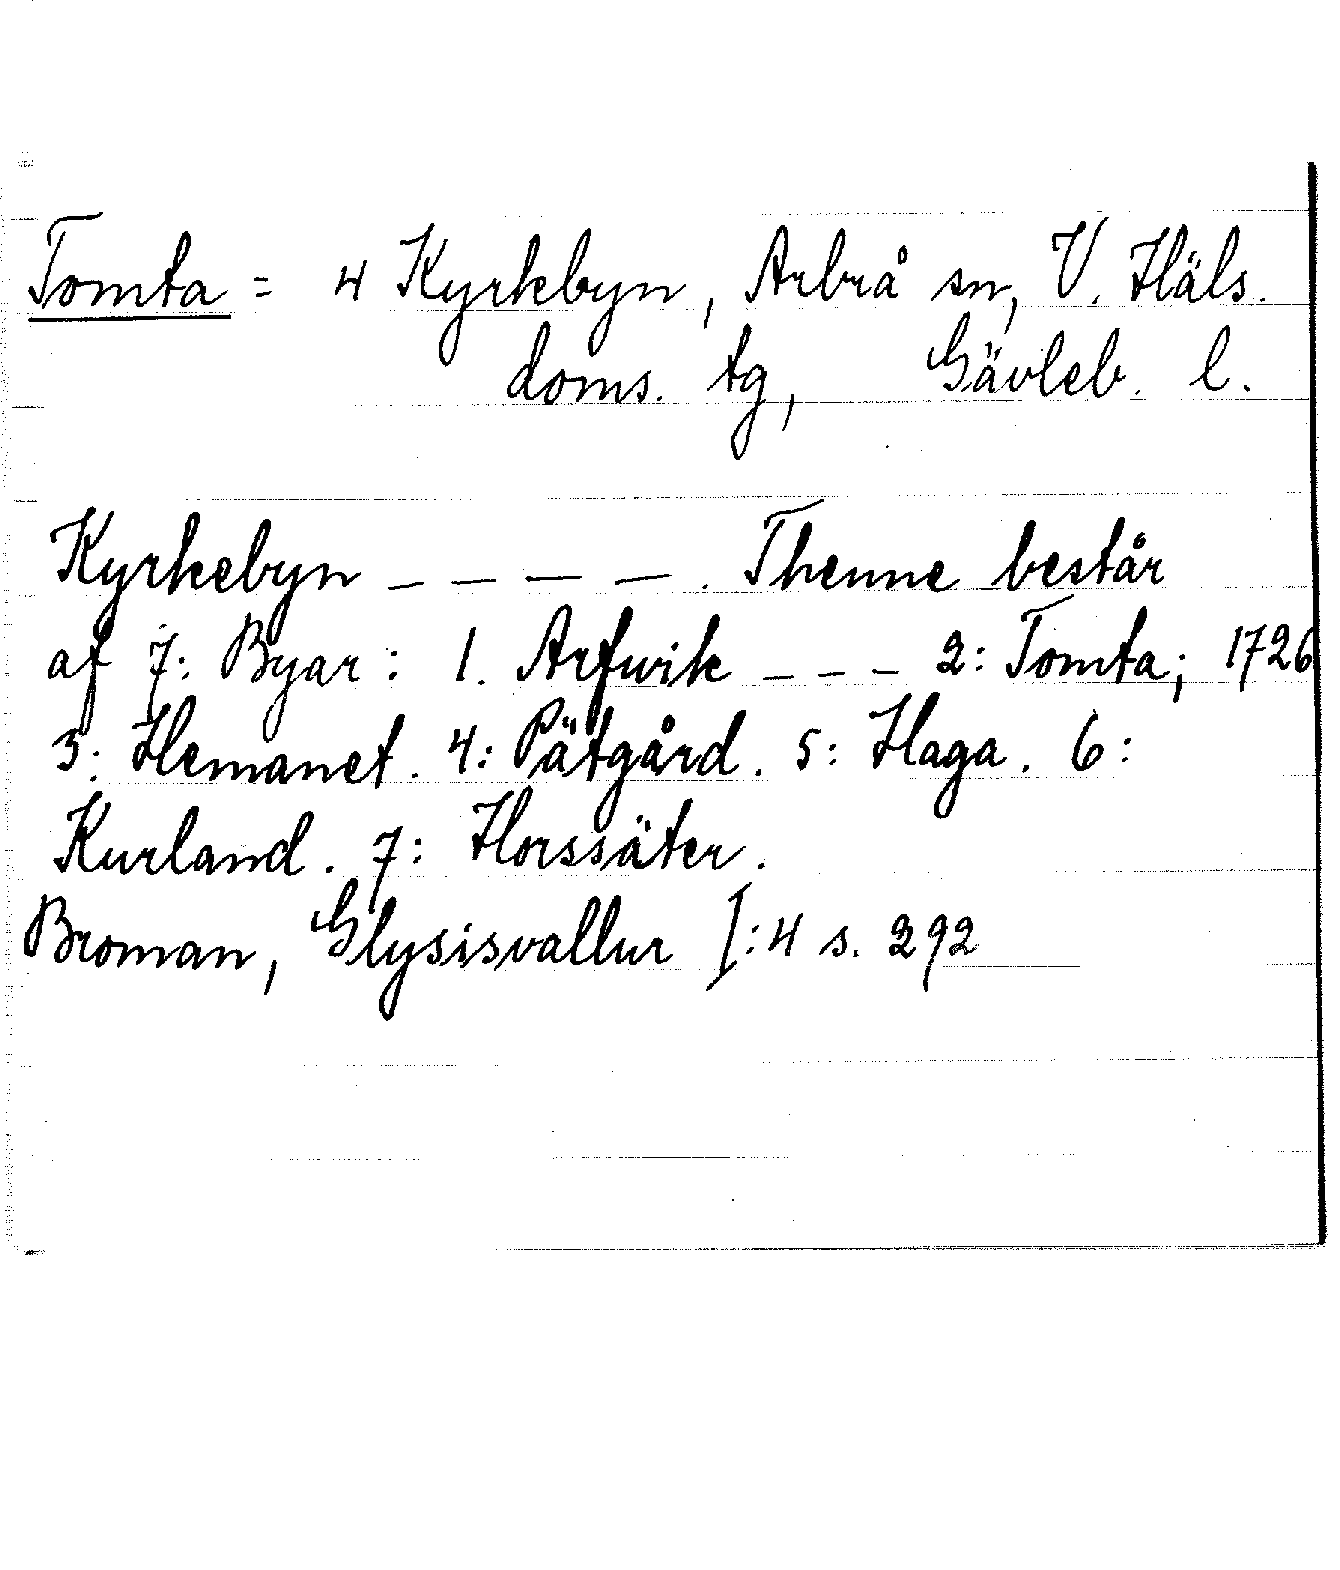 Tomta = 4 Kyrkebyn, Arbrå sn, V. Häls.
doms. tg, Gävleb. l.
Kyrkebyn _ _ _ _ . Thenne består
af 7: Byar: 1. Arfwik _ _ _ 2: Tomta; 1726
3: Hemanet. 4: Pätgård. 5: Haga. 6:
Kurland. 7: Horssäter.
Broman, Glysisvallur I:4 s. 292